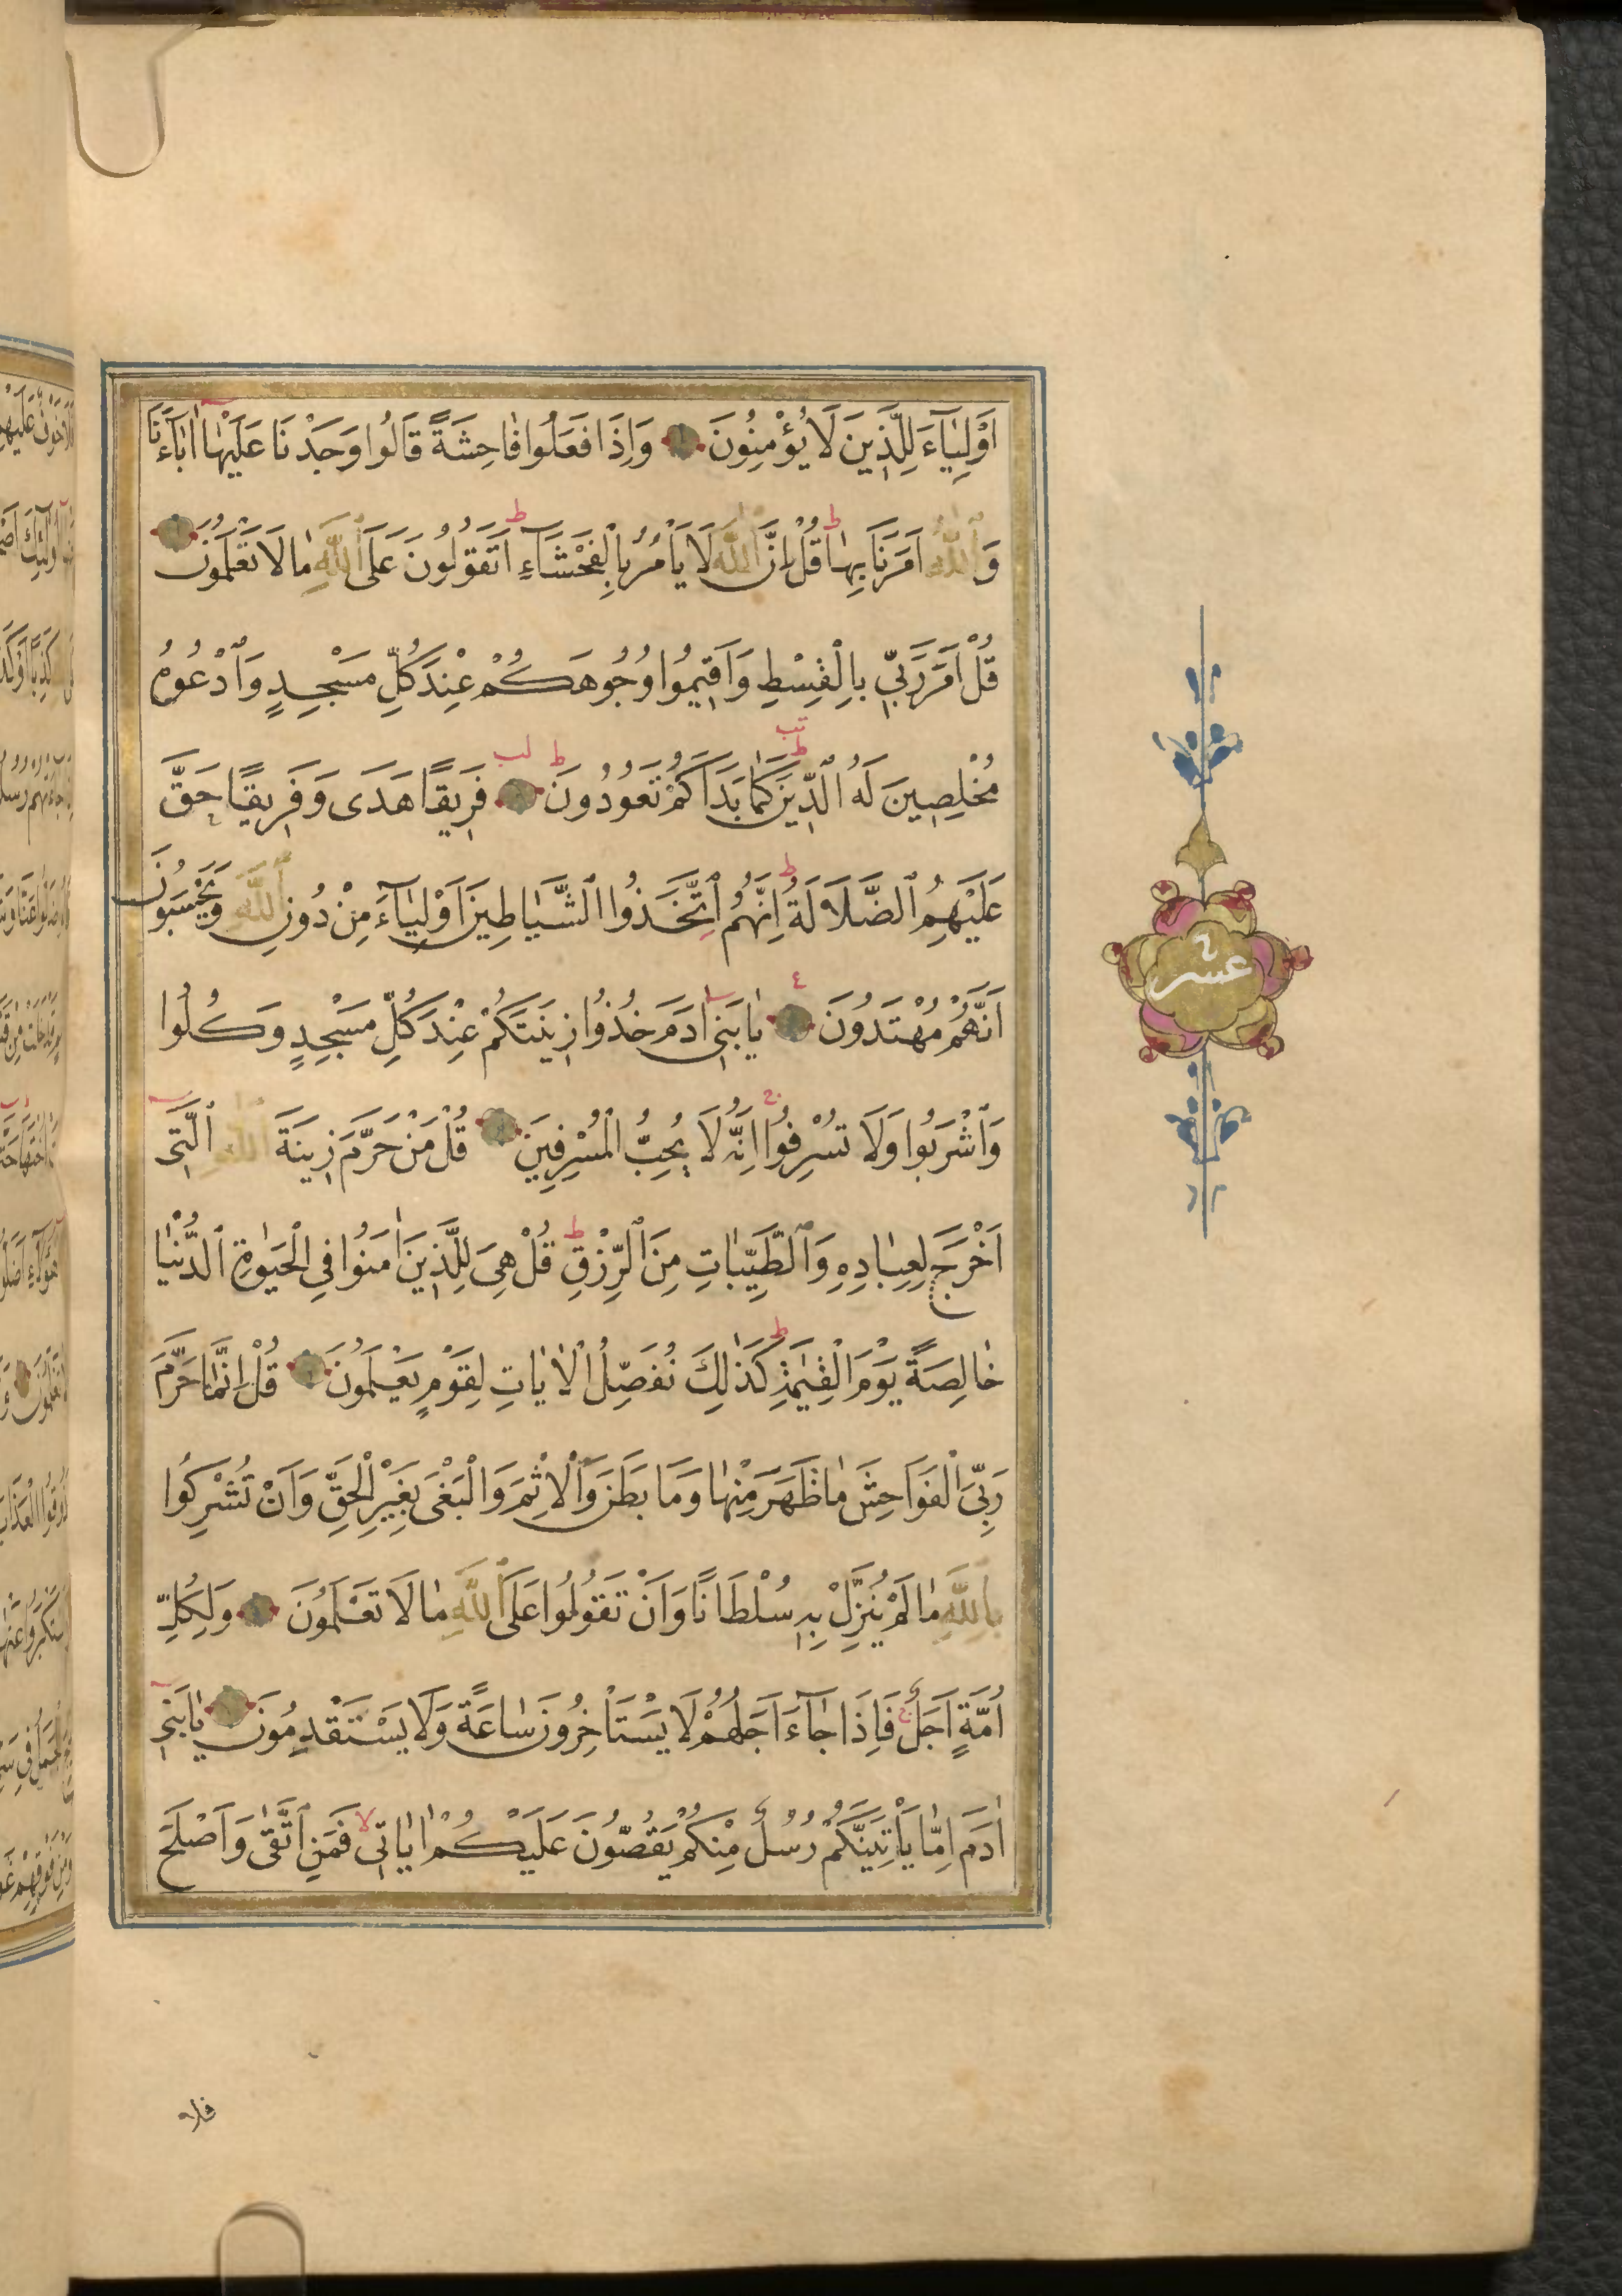 اَوْلِيَآءَ لِلَّذِينَ لَا يُؤْمِنُونَ وَاِذَا فَعَلُوا فَاحِشَةً قَالُوا وَجَدْنَا عَلَيْهَا اٰبَآءَنَا
وَاللّٰهُ اَمَرَنَا بِهَا ط قُلْ اِنَّ اللّٰهَ لَا يَاْمُرُ بِالْفَحْشَآءِ ط اَتَقُولُونَ عَلَى اللّٰهِ مَا لَا تَعْلَمُونَ
قُلْ اَمَرَ رَبِّي بِالْقِسْطِ وَاَقِيمُوا وُجُوهَكُمْ عِنْدَ كُلِّ مَسْجِدٍ وَادْعُوهُ
مُخْلِصِينَ لَهُ الدِّينَ ط تب كَمَا بَدَاَكُمْ تَعُودُونَ ط لب فَرِيقًا هَدٰى وَفَرِيقًا حَقَّ
عَلَيْهِمُ الضَّلَالَةُ ط اِنَّهُمُ اتَّخَذُوا الشَّيَاطِينَ اَوْلِيَآءَ مِنْ دُونِ اللّٰهِ وَيَحْسَبُونَ
اَنَّهُمْ مُهْتَدُونَ ٤ يَا بَنِي اٰدَمَ خُذُوا زِينَتَكُمْ عِنْدَ كُلِّ مَسْجِدٍ وَكُلُوا
وَاشْرَبُوا وَلَا تُسْرِفُوا ج اِنَّهُ لَا يُحِبُّ الْمُسْرِفِينَ قُلْ مَنْ حَرَّمَ زِينَةَ اللّٰهِ الَّتِي
اَخْرَجَ لِعِبَادِهِ وَالطَّيِّبَاتِ مِنَ الرِّزْقِ ط قُلْ هِيَ لِلَّذِينَ اٰمَنُوا فِي الْحَيٰوةِ الدُّنْيَا
خَالِصَةً يَوْمَ الْقِيٰمَةِ ط كَذٰلِكَ نُفَصِّلُ الْاٰيَاتِ لِقَوْمٍ يَعْلَمُونَ قُلْ اِنَّمَا حَرَّمَ
رَبِّيَ الْفَوَاحِشَ مَا ظَهَرَ مِنْهَا وَمَا بَطَنَ وَالْاِثْمَ وَالْبَغْيَ بِغَيْرِ الْحَقِّ وَاَنْ تُشْرِكُوا
بِاللّٰهِ مَا لَمْ يُنَزِّلْ بِهِ سُلْطَانًا وَاَنْ تَقُولُوا عَلَى اللّٰهِ مَا لَا تَعْلَمُونَ وَلِكُلِّ
اُمَّةٍ اَجَلٌ ج فَاِذَا جَآءَ اَجَلُهُمْ لَا يَسْتَاْخِرُونَ سَاعَةً وَلَا يَسْتَقْدِمُونَ يَا بَنِي
اٰدَمَ اِمَّا يَاْتِيَنَّكُمْ رُسُلٌ مِنْكُمْ يَقُصُّونَ عَلَيْكُمْ اٰيَاتِي لا فَمَنِ اتَّقٰى وَاَصْلَحَ
عشر
فلا